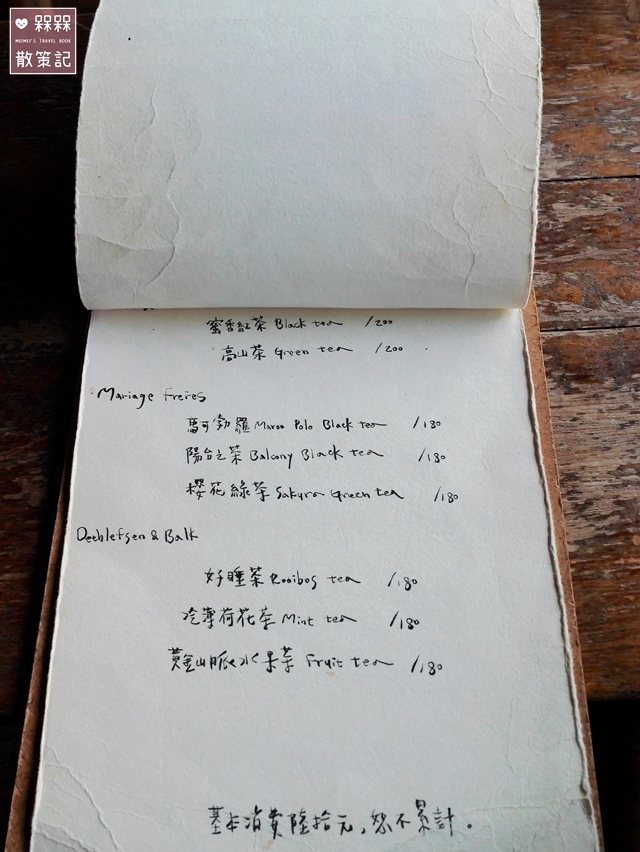 槑槑
MEIMEI'S TRAVEL BOOK
散策記
蜜香紅茶 Black tea /200
高山茶 Green tea /200
Mariage Freres
馬可勃羅 Maroo Polo Black tea /180
陽台之茶 Balcony Black tea /180
櫻花綠茶 Sakura Green tea /180
Dethlefsen & Balk
好睡茶 Rooibos tea /180
冷薄荷花茶 Mint tea /180
黃金山脈水果茶 Fruit tea /180
基本消費陸拾元,恕不累計。